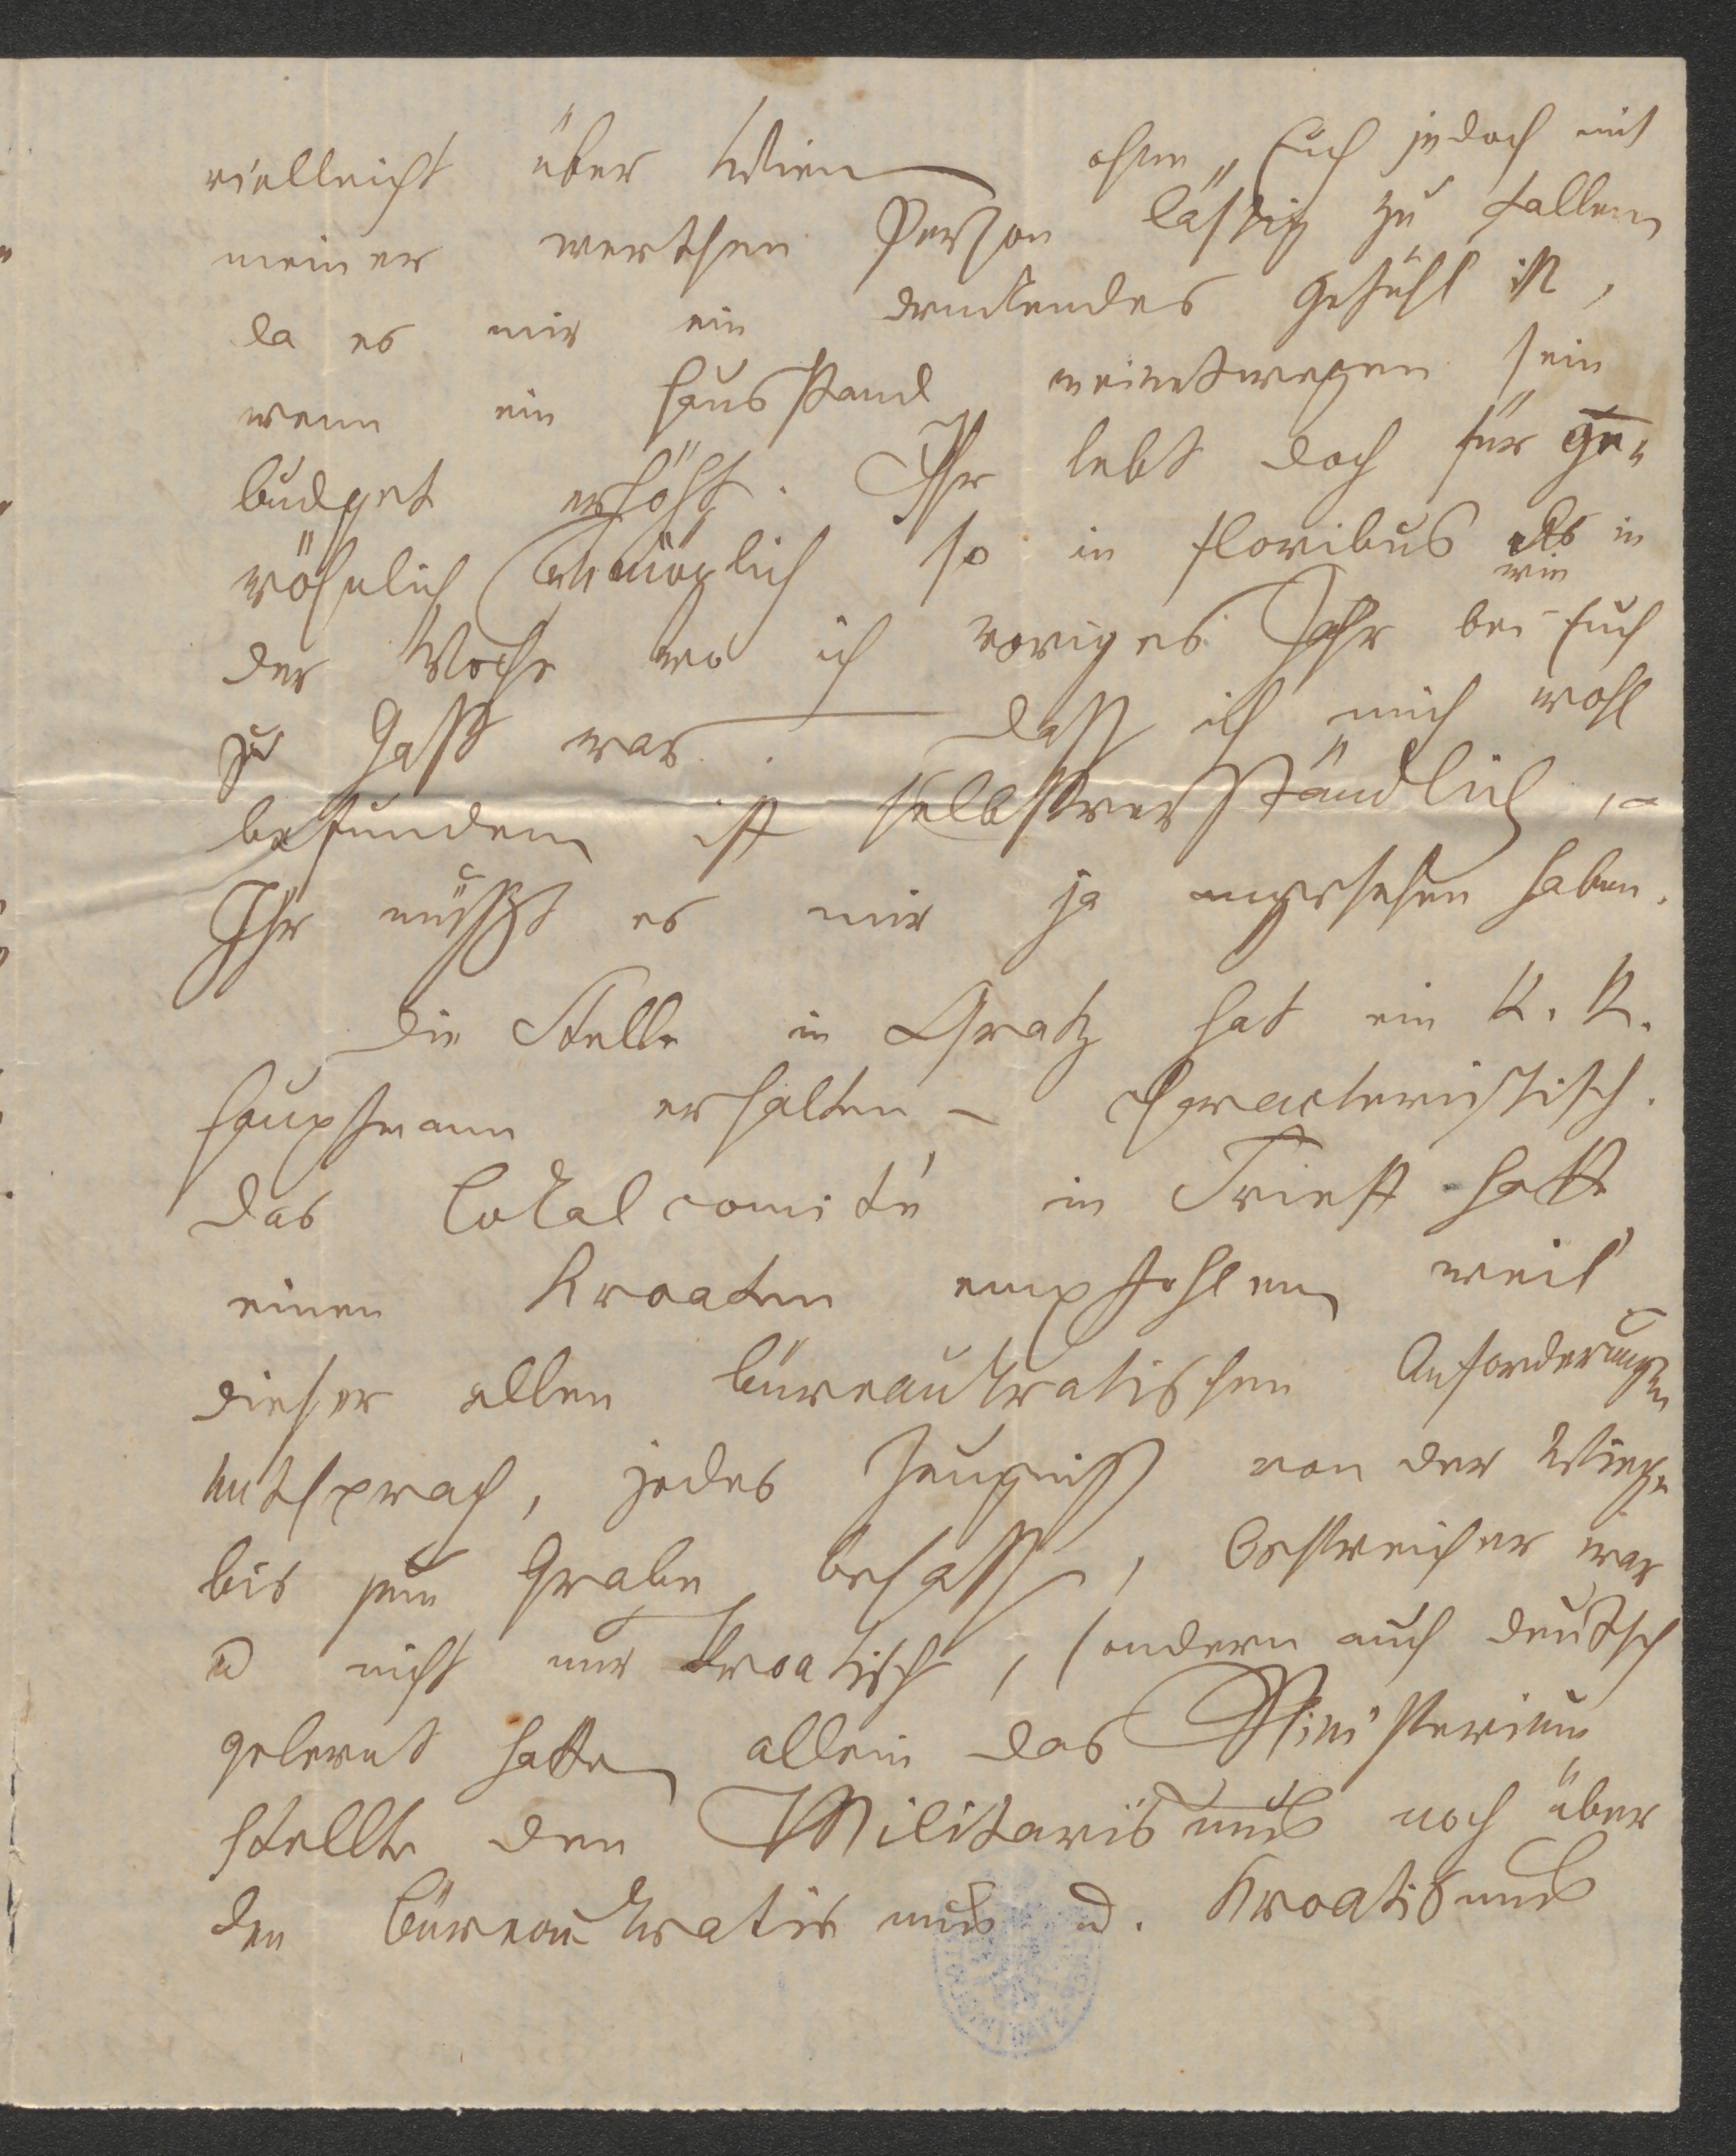 vielleicht über Wien ohne Euch jedoch mit
meiner werthen Person lästig zu fallen
da es mir ein drückendes Gefühl ist,
wenn ein Hausstand meinetwegen sein
budget erhöht. Ihr lebt doch für ge-
wöhnlich unmöglich so in floribus als in
wie
der Woche wo ich voriges Jahr bei Euch
zu Gast war. Dass ich mich wohl
befunden ist selbstverständlich, –
Ihr müsst es mir ja angesehen haben.
Die Stelle in Gratz hat ein K. K.
Hauptmann erhalten – characteristisch.
Das Lokalcomité in Triest hatte
einen Kroaten empfohlen weil
dieser allen büreaukratischen Anforderungen
entsprach, jedes Zeugniss von der Wiege
bis zum Grabe besass, Oestreicher war
u nicht nur kroatisch, sondern auch deutsch
gelernt hatte, allein das Ministerium
stellte den Militarismus noch über
den Büreaukratismus u. Kroatismus